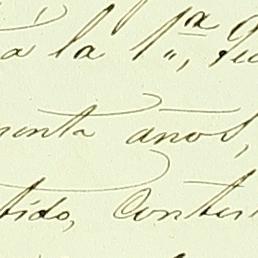 a la 1ª,
menta años,
tido, Conte